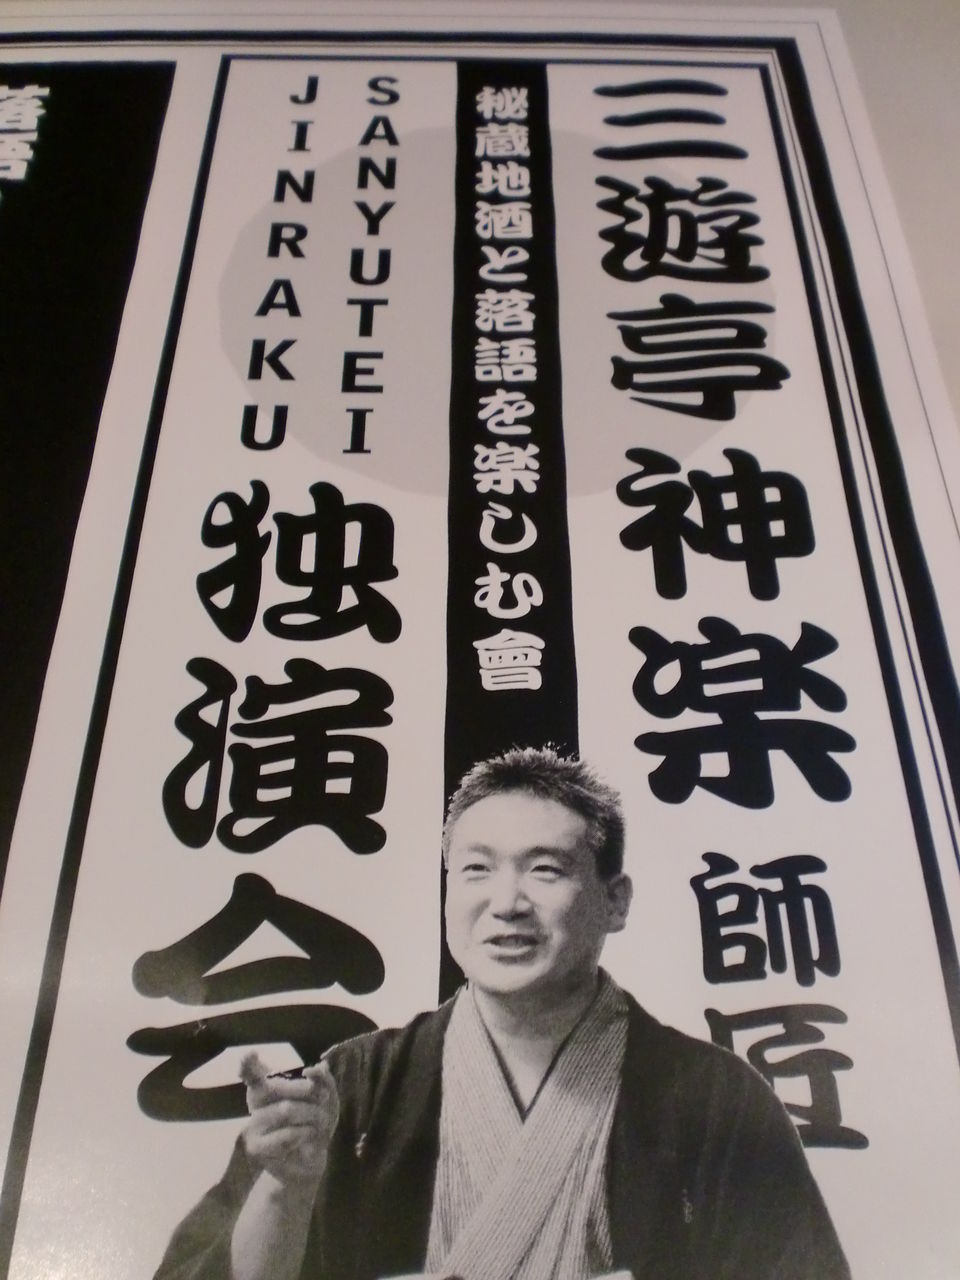 三遊亭 神楽 師匠
秘蔵地酒と落語を楽しむ會
SANYUTEI
JINRAKU
独演会
落語